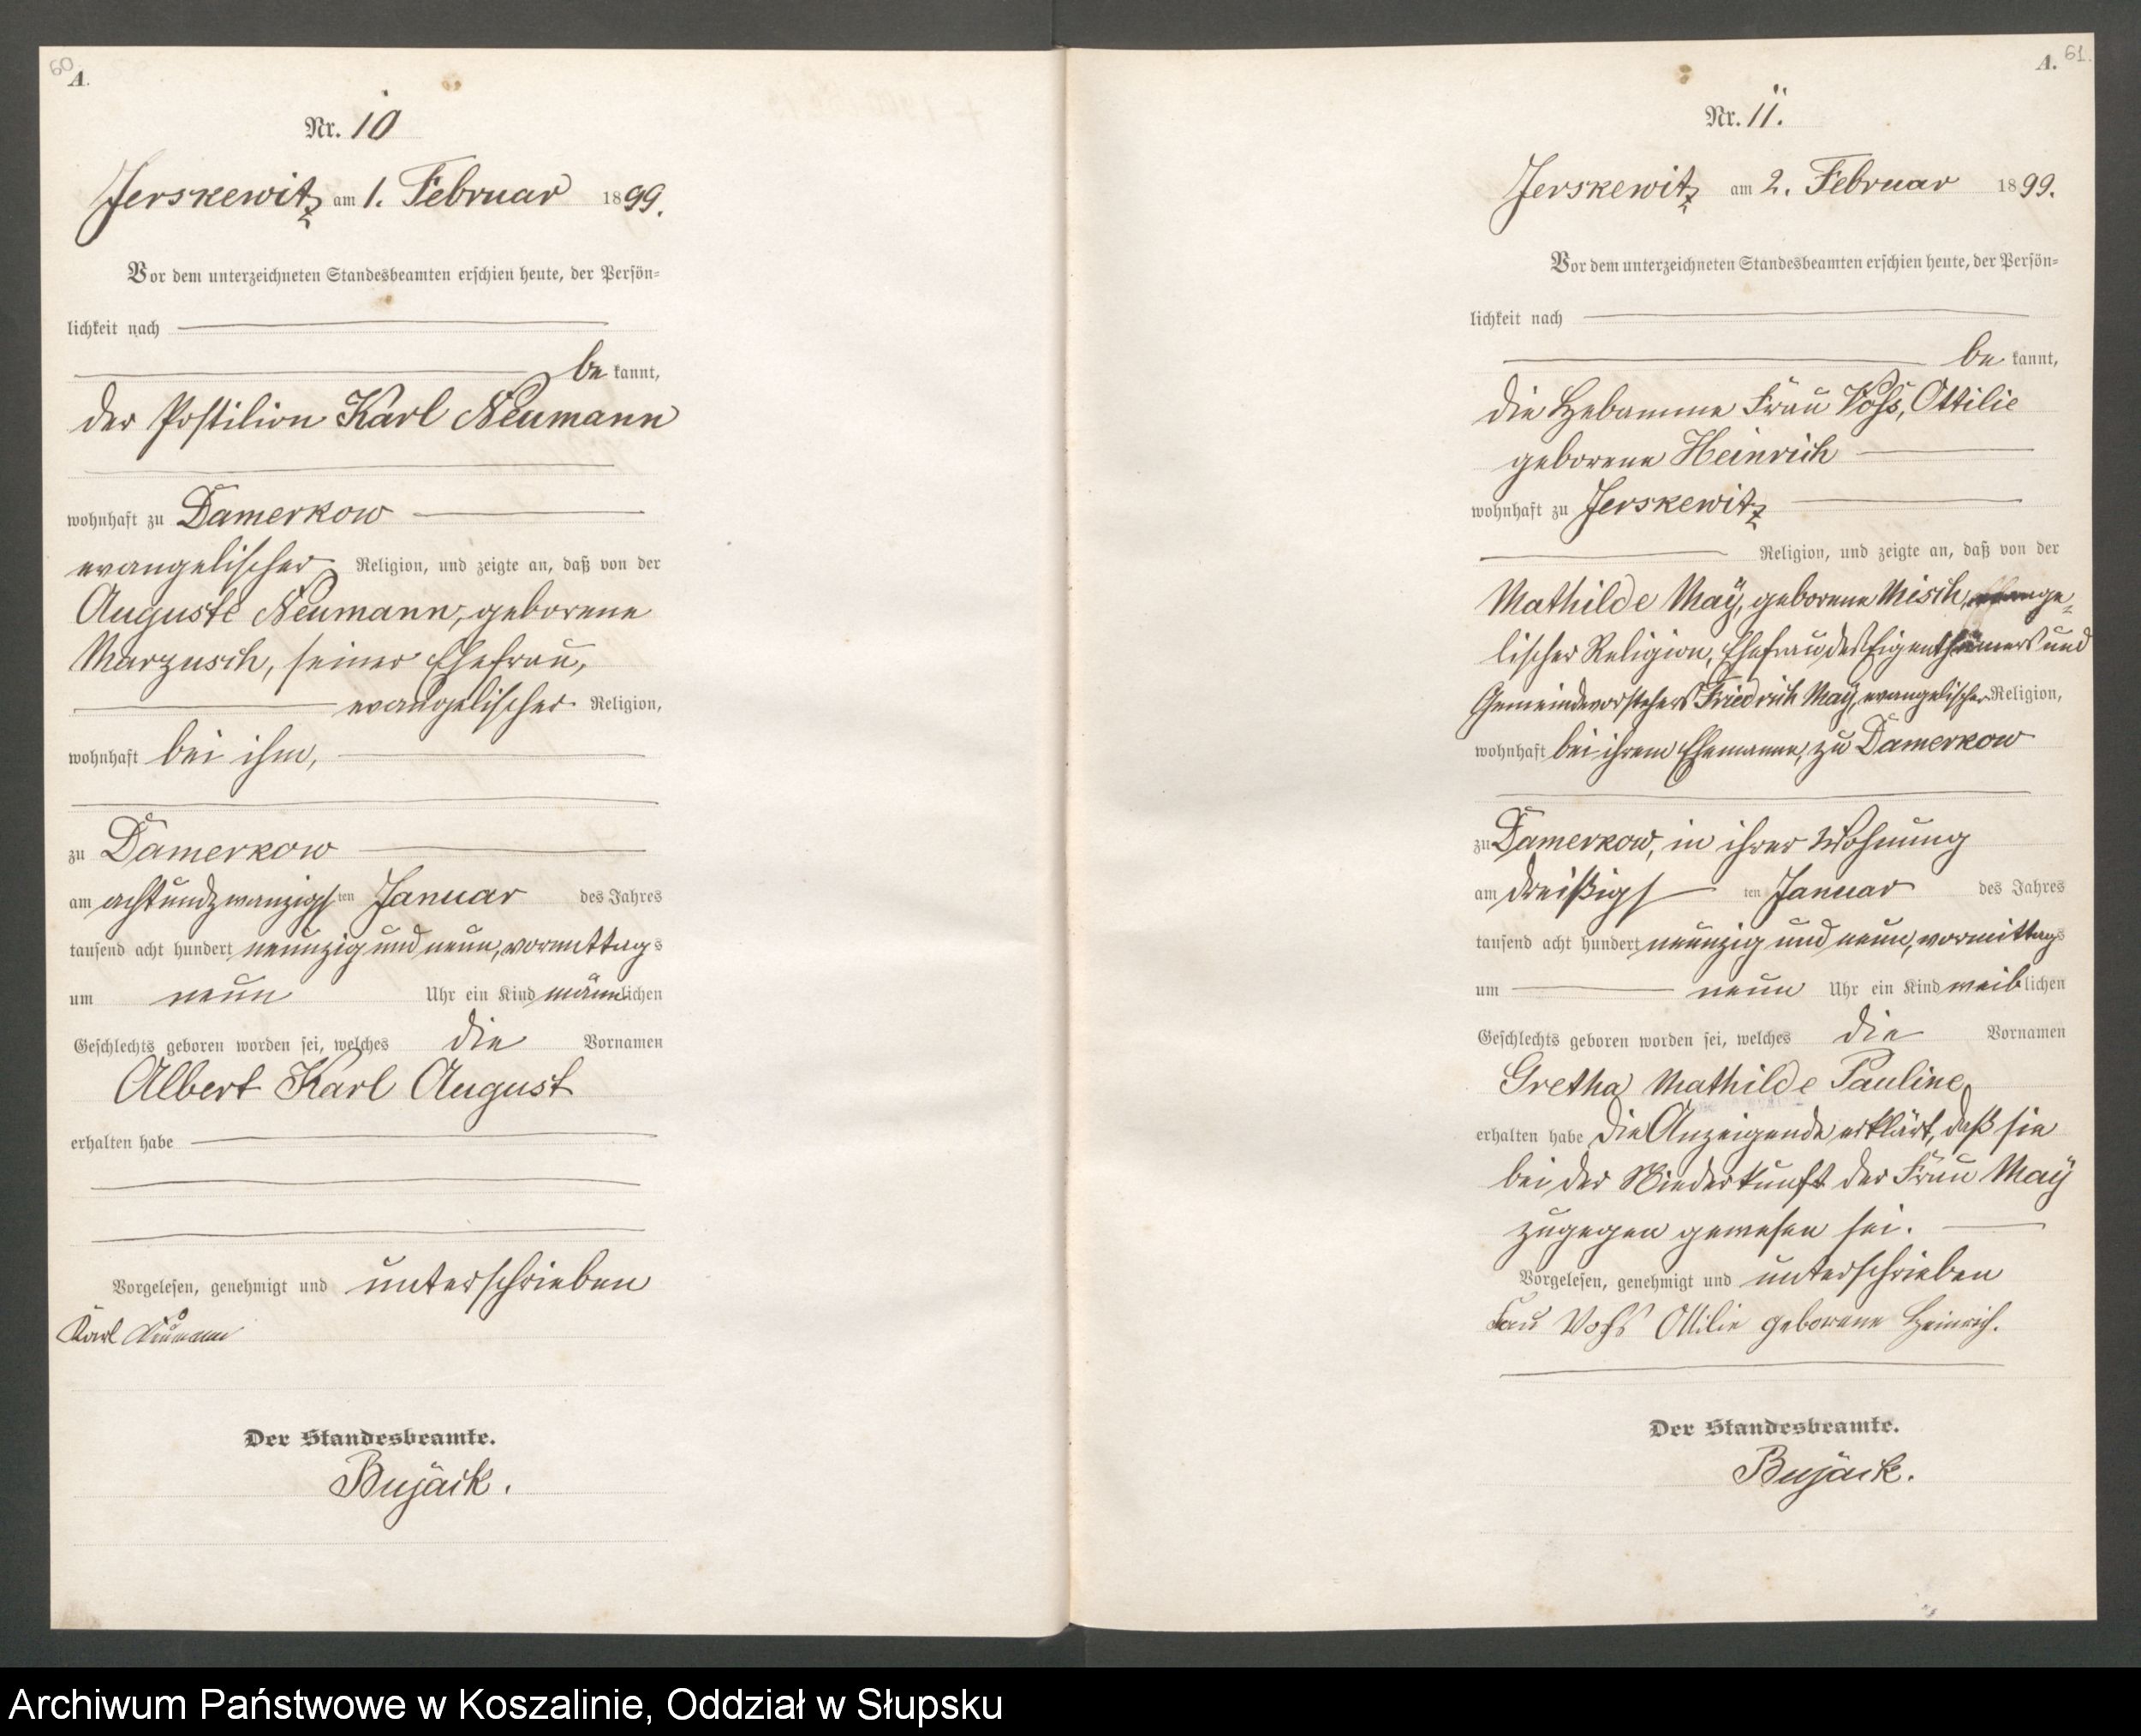 60
A.
Nr. 10
Jerskewitz am 1. Februar 1899.
Vor dem unterzeichneten Standesbeamten erschien heute, der Persön-
lichkeit nach
be kannt,
der Postilion Karl Neumann
wohnhaft zu Damerkow
evangelischer Religion, und zeigte an, daß von der
Auguste Neumann, geborene
Marzusch, seiner Ehefrau,
evangelischer Religion,
wohnhaft bei ihm,
zu Damerkow
am achtundzwanzigsten Januar des Jahres
tausend acht hundert neunzig und neun, vormittags
um neun Uhr ein Kind männlichen
Geschlechts geboren worden sei, welches die Vornamen
Albert Karl August
erhalten habe
Vorgelesen, genehmigt und unterschrieben
Karl Neumann
Der Standesbeamte.
Bujack.
A. 61.
Nr. 11.
Jerskewitz am 2. Februar 1899.
Vor dem unterzeichneten Standesbeamten erschien heute, der Persön-
lichkeit nach
be kannt,
die Hebamme Frau Voß, Ottilie
geborene Heinrich
wohnhaft zu Jerskewitz
Religion, und zeigte an, daß von der
Mathilde May, geborene Misch, evange-
lischer Religion, Ehefrau des Eigenthümers und
Gemeindevorstehers Friedrich May, evangelischer Religion,
wohnhaft bei ihrem Ehemanne, zu Damerkow
zu Damerkow, in ihrer Wohnung
am dreißigsten Januar des Jahres
tausend acht hundert neunzig und neun, vormittags
um neun Uhr ein Kind weiblichen
Geschlechts geboren worden sei, welches die Vornamen
Gretha Mathilde Pauline
erhalten habe die Anzeigende erklärt, daß sie
bei der Niederkunft der Frau May
zugegen gewesen sei.
Vorgelesen, genehmigt und unterschrieben
Frau Voß Ottilie geborene Heinrich.
Der Standesbeamte.
Bujack.
Archiwum Państwowe w Koszalinie, Oddział w Słupsku